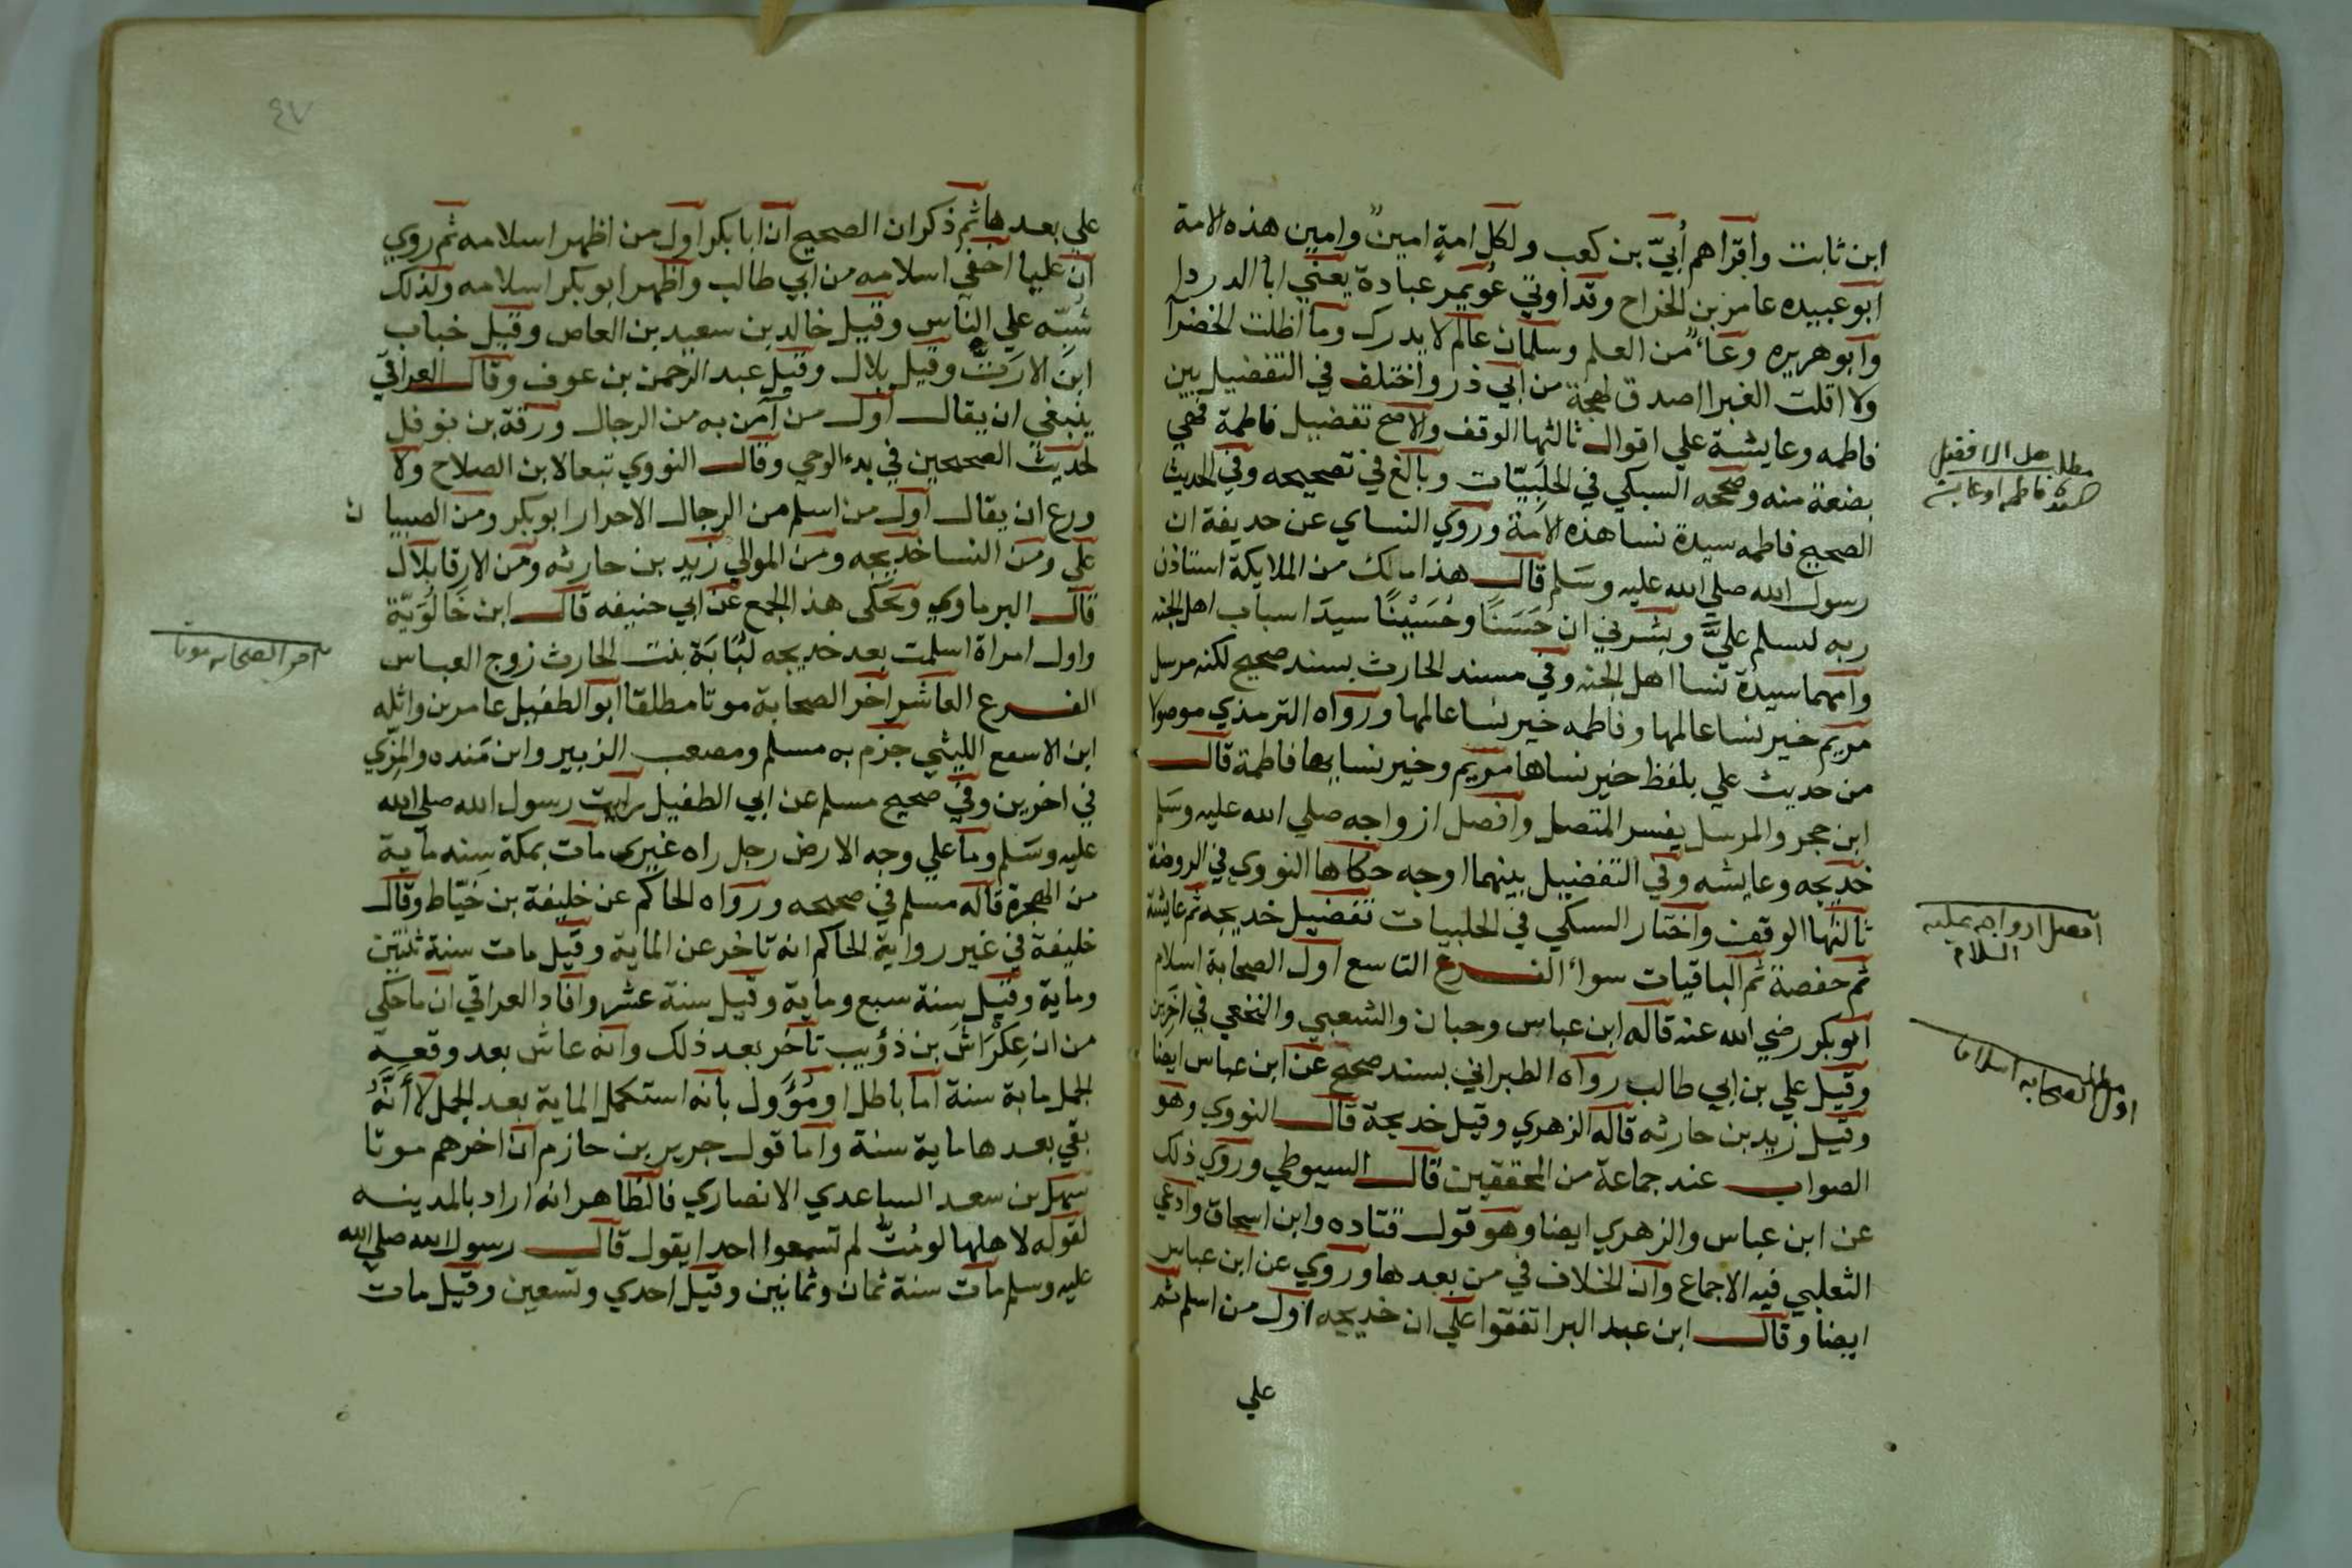 ابن ثابت واقراهم أُبيّ بن كعب ولكل امةٍ امينٌ وامين هذه الامة
ابو عبيده عامر بن الخراح وقد اوتي عُوَيمر عبادة يعني ابا الدردا
وابو هريره وعاءً من العلم وسلمان عالم لا يدرك وما اظلت الخضرآ
ولا اقلت الغبرا اصدق لهجة من ابي ذر واختلف في التفضيل بين
فاطمه وعايشة علي اقوال ثالثها الوقف والاصح تفضيل فاطمة فهي
بضعة منه وصححه السبكي في الحلبيّات وبالغ في تصحيحه وفي الحديث
الصحيح فاطمه سيدة نسا هذه الامة وروي النساي عن حديفة ان
رسول الله صلي الله عليه وسَلم قال هذا مالك من الملايكة استاذن
ربه ليسلم عليَّ وبشرني ان حَسَنًا وحُسَيْنًا سيدَا اسباب اهل الجنه
وامهما سيدة نسا اهل الجنه وفي مسند الحارث بسند صحيح لكنه مرسل
مريم خير نسا عالمها وفاطمه خير نسا عالمها ورواه الترمذي موصولا
من حديث علي بلفظ خير نساها مريم وخير نسايها فاطمة قال
ابن حجر والمرسل يفسر المتصل وافضل ازواجه صلي الله عليه وسَلم
خديجه وعايشه وفي التفضيل بينهما اوجه حكاها النووي في الروضة
ثالثها الوقف واختار السبكي في الحلبيات تفضيل خديجه ثم عايشة
ثم حفصة ثم الباقيات سواء الفرع التاسع اول الصحابة اسلام
ابو بكر رضي الله عنه قاله ابن عباس وحبان والشعبي والنخعي في اخرين
وقيل علي بن ابي طالب رواه الطبراني بسند صحيح عن ابن عباس ايضا
وقيل زيد بن حارثه قاله الزهري وقيل خديجة قال النووي وهو
الصواب عند جماعة من المحققين قال السيوطي وروي ذلك
عن ابن عباس والزهري ايضا وهو قول قتاده وابن اسحاق وادعي
الثعلبي فيه الاجماع وان الخلاف في من بعدها وروي عن ابن عباس
ايضا وقال ابن عبد البر اتفقوا علي ان خديجه اول من اسلم ثم
علي
افضل ازواجه عليه
السلام
مطلب
اول الصحابه اسلاما
٤٧
علي بعدها ثم ذكر ان الصحيح ان ابا بكر اول من اظهر اسلامه ثم روي
ان عليا اخفي اسلامه من ابي طالب واظهر ابو بكر اسلامه ولذلك
شُبّه علي الناس وقيل خالد بن سعيد بن العاص وقيل خباب
ابن الارَتّ وقيل بلال وقيل عبد الرحمن بن عوف وقال العراقي
ينبغي ان يقال اول من آمن به من الرجال ورقة بن نوفل
لحديث الصحيحين في بدء الوحي وقال النووي تبعا لابن الصلاح ولا
ورع ان يقال اول من اسلم من الرجال الاحرار ابو بكر ومن الصبيا ن
علي ومن النسا خديجه ومن الموالي زيد بن حارثه ومن الارقا بلال
قال البرماوي ويحكى هذ الجمع عن ابي حنيفه قال ابن خَالُوَيّة
واول امراة اسلمت بعد خديجه لُبَابَة بنت الحارث زوج العباس
الفرع العاشر اخر الصحابة موتا مطلقا ابو الطفيل عامر بن واثله
ابن الاسعع الليثي جزم به مسلم ومصعب الزبير وابن مَنده والمِزّي
في اخرين وفي صحيح مسلم عن ابي الطفيل رايت رسول الله صلي الله
عليه وسَلم وما علي وجه الارض رجل راه غيري مات بمكة سنه ماية
من الهجرة قاله مسلم في صحيحه ورواه الحاكم عن خليفة بن خيّاط وقال
خليفة في غير رواية الحاكم انه تاخر عن الماية وقيل مات سنة ثنتين
وماية وقيل سنة سبع وماية وقيل سنة عشر وافاد العراقي ان ما حكي
من ان عِكْرَاش بن ذؤيب تاخر بعد ذلك وانه عاش بعد وقعة
الجمل ماية سنة اما باطل او مُؤَوَل بانه استكمل الماية بعد الجمل لا أَنَّهُ
بقي بعدها ماية سنة واما قول جرير بن حازم ان اخرهم موتا
سهل بن سعد الساعدي الانصاري فالظاهر انه اراد بالمدينه
لقوله لاهلها لو مُتُّ لم تسمعوا احدا يقول قال رسول الله صلي الله
عليه وسلم مات سنة ثمان وثمانين وقيل احدي وتسعين وقيل مات
اخر الصحابه موتا